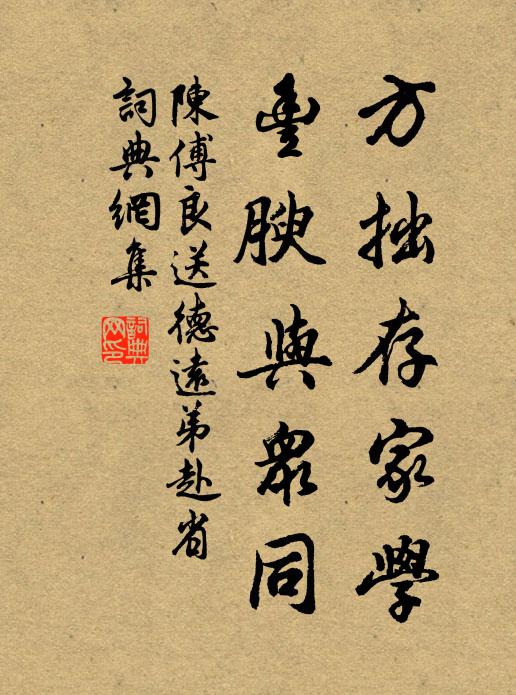 方拙存家學
豐腴與衆同
陳傅良送德遠弟赴省
詞典網集
詞典網印